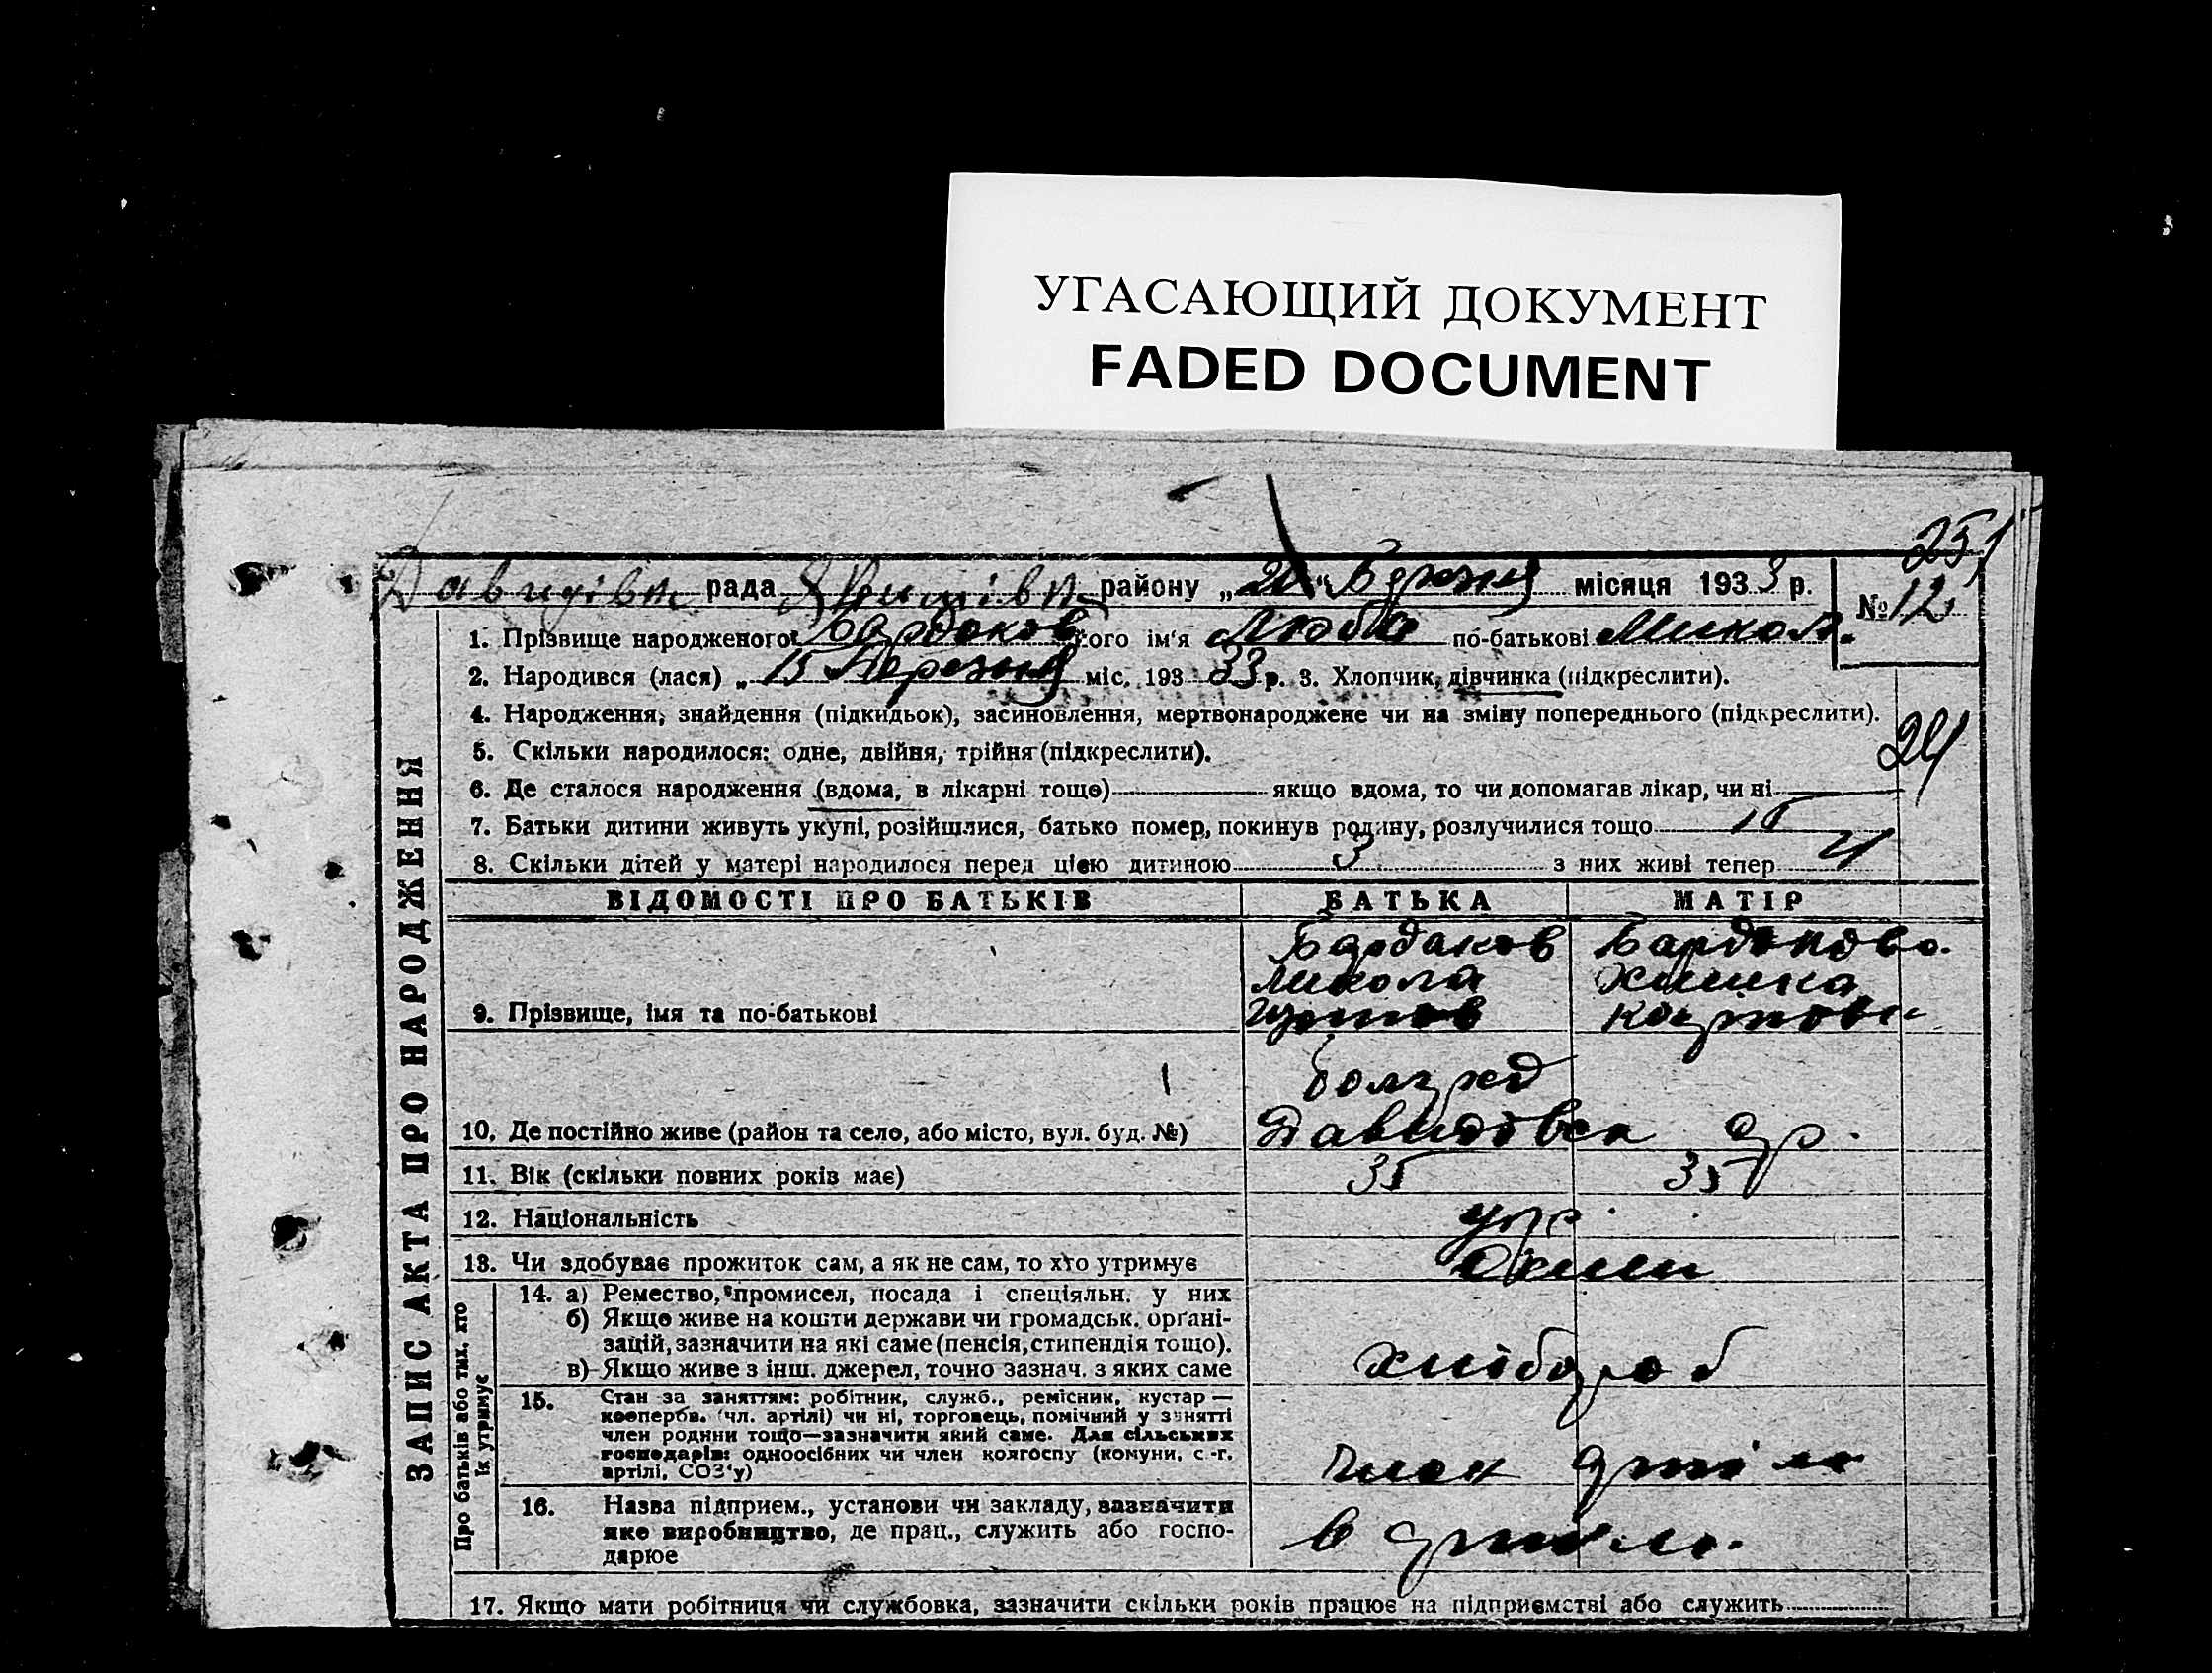 УГАСАЮЩИЙ ДОКУМЕНТ
FADED DOCUMENT
251
Давидівка рада району „ “ Березня місяця 1933 р. № 12
1. Прізвище народженого Бардаков його ім'я Люба по-батькові Микол.
2. Народився (лася) „ 15 Березня міс. 193 33 р. 3. Хлопчик, дівчинка (підкреслити).
4. Народження, знайдення (підкидьок), засиновлення, мертвонароджене чи на зміну попереднього (підкреслити).
24
5. Скільки народилося: одне, двійня, трійня (підкреслити).
6. Де сталося народження (вдома, в лікарні тощо) якщо вдома, то чи допомагав лікар, чи ні
7. Батьки дитини живуть укупі, розійшлися, батько помер, покинув родину, розлучилися тощо
8. Скільки дітей у матері народилося перед цією дитиною 3 з них живі тепер 4
ЗАПИС АКТА ПРО НАРОДЖЕННЯ
ВІДОМОСТІ ПРО БАТЬКІВ БАТЬКА МАТІР
Бардаков Бардакова
Микола
9. Прізвище, імя та по-батькові
10. Де постійно живе (район та село, або місто, вул. буд. №) Давидовка
11. Вік (скільки повних років має) 35 35
12. Національність укр.
13. Чи здобуває прожиток сам, а як не сам, то хто утримує
Про батьків або тих, хто їх утримує
14. а) Ремество, промисел, посада і спеціяльн. у них
б) Якщо живе на кошти держави чи громадськ. органі-
зацій, зазначити на які саме (пенсія, стипендія тощо).
в) Якщо живе з інш. джерел, точно зазнач. з яких саме хлібороб
15. Стан за заняттям: робітник, служб., ремісник, кустар —
кооперов. (чл. артілі) чи ні, торговець, помічний у занятті
член родини тощо—зазначити який саме. Для сільських
господарів: одноосібних чи член колгоспу (комуни, с.-г.
артілі, СОЗ'у) член артіли
16. Назва підприєм., установи чи закладу, зазначити
яке виробництво, де прац., служить або госпо-
дарює в артили.
17. Якщо мати робітниця чи службовка, зазначити скільки років працює на підприємстві або служить